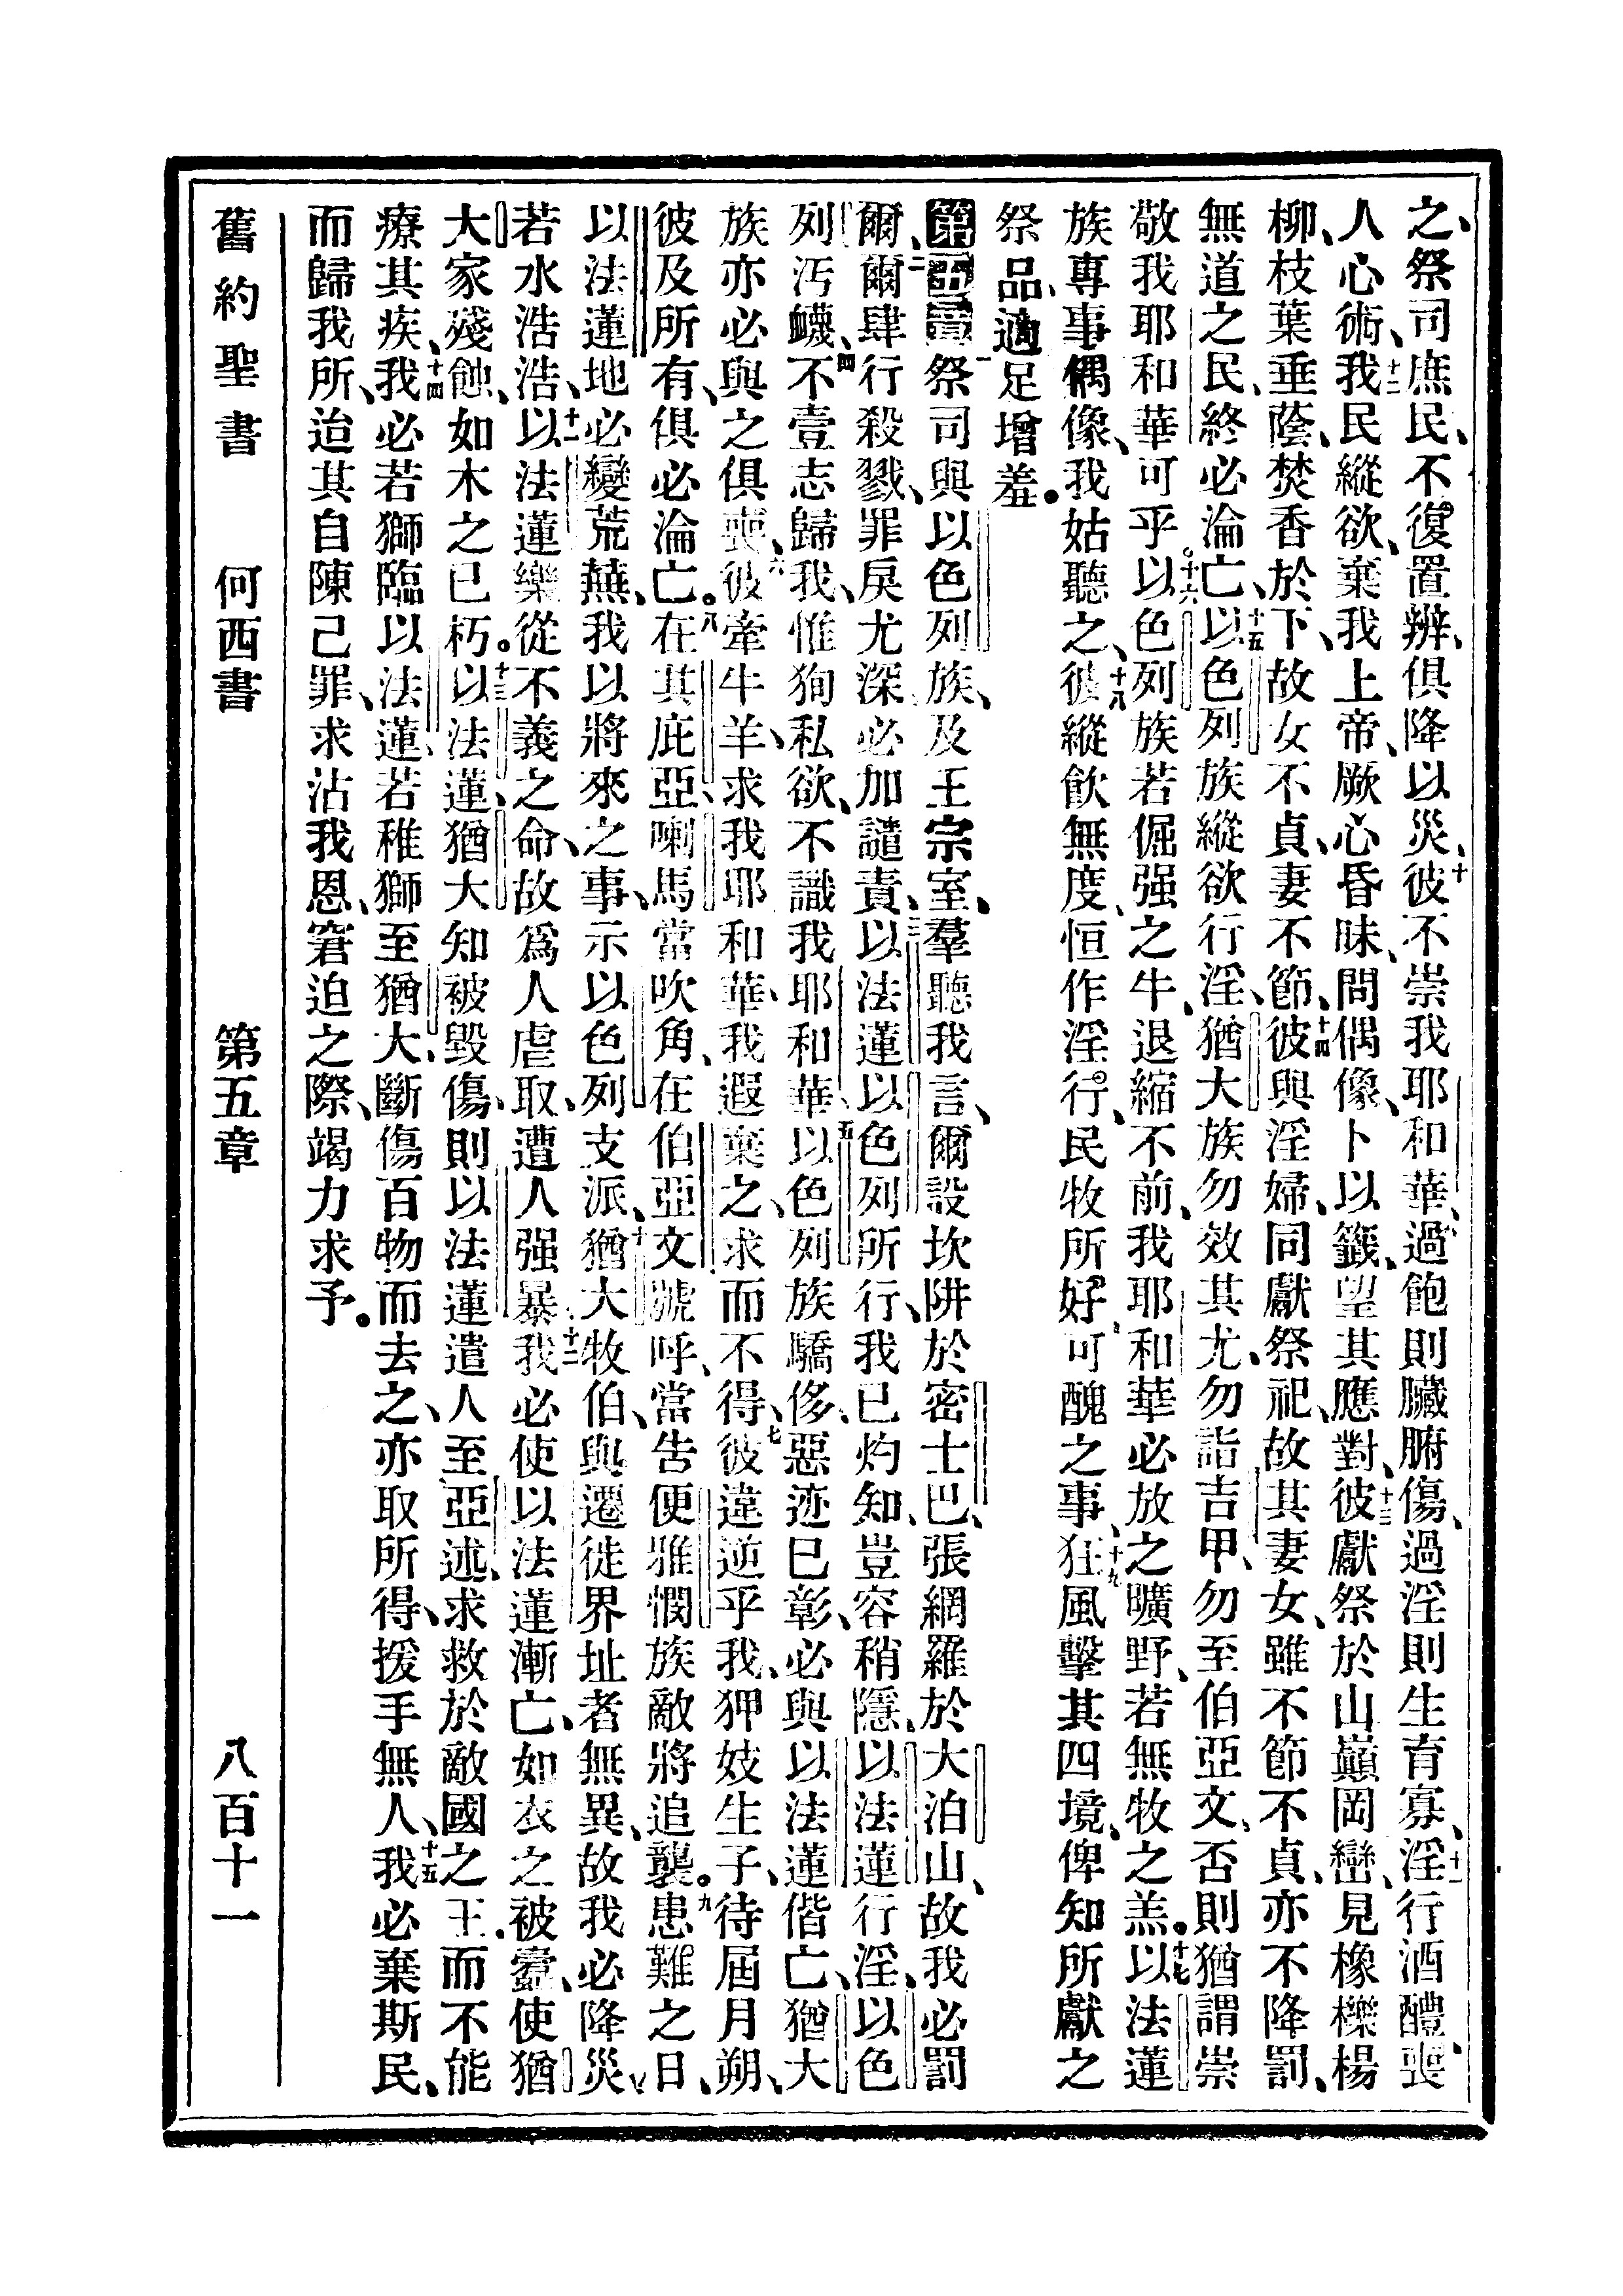 之、祭司庶民、不復置辨、俱降以災、十彼不崇我耶和華、過飽則臟腑傷、過淫則生育寡、十一淫行酒醴、喪
人心術、十二我民縱欲、棄我上帝、厥心昏昧、問偶像、卜以籤、望其應對、十三彼獻祭於山巔岡巒、見橡櫟楊
柳、枝葉垂蔭、焚香於下、故女不貞、妻不節、十四彼與淫婦、同獻祭祀、故其妻女、雖不節不貞、亦不降罰、
無道之民、終必淪亡、十五以色列族縱欲行淫、猶大族勿效其尤、勿詣吉甲、勿至伯亞文、否則猶謂崇
敬我耶和華可乎。十六以色列族若倔强之牛、退縮不前、我耶和華必放之曠野、若無牧之羔。十七以法蓮
族專事偶像、我姑聽之、十八彼縱飲無度、恒作淫行、民牧所好、可醜之事、十九狂風擊其四境、俾知所獻之
祭品、適足增羞。
第五章一祭司與以色列族、及王宗室、羣聽我言、爾設坎阱於密士巴、張網羅於大泊山、故我必罰
爾、二爾肆行殺戮、罪戾尤深、必加譴責、三以法蓮以色列所行、我已灼知、豈容稍隱、以法蓮行淫、以色
列汚衊、四不壹志歸我、惟狥私欲、不識我耶和華、五以色列族驕侈、惡迹已彰、必與以法蓮偕亡、猶大
族亦必與之俱喪、六彼牽牛羊、求我耶和華、我遐棄之、求而不得、七彼違逆乎我、狎妓生子、待屆月朔、
彼及所有、俱必淪亡。八在其庇亞、喇馬當吹角、在伯亞文號呼、當告便雅憫族敵將追襲。九患難之日、
以法蓮地必變荒蕪、我以將來之事、示以色列支派、十猶大牧伯、與遷徙界址者無異、故我必降災、
若水浩浩、十一以法蓮樂從不義之命、故爲人虐取、遭人强暴、十二我必使以法蓮漸亡、如衣之被蠹、使猶
大家殘蝕、如木之已朽。十三以法蓮、猶大知被毀傷、則以法蓮遣人至亞述、求救於敵國之王、而不能
療其疾、十四我必若獅臨以法蓮、若稚獅至猶大、斷傷百物而去之、亦取所得、援手無人、十五我必棄斯民、
而歸我所、迨其自陳己罪、求沾我恩、窘迫之際、竭力求予。
舊約聖書 何西書 第五章 八百十一